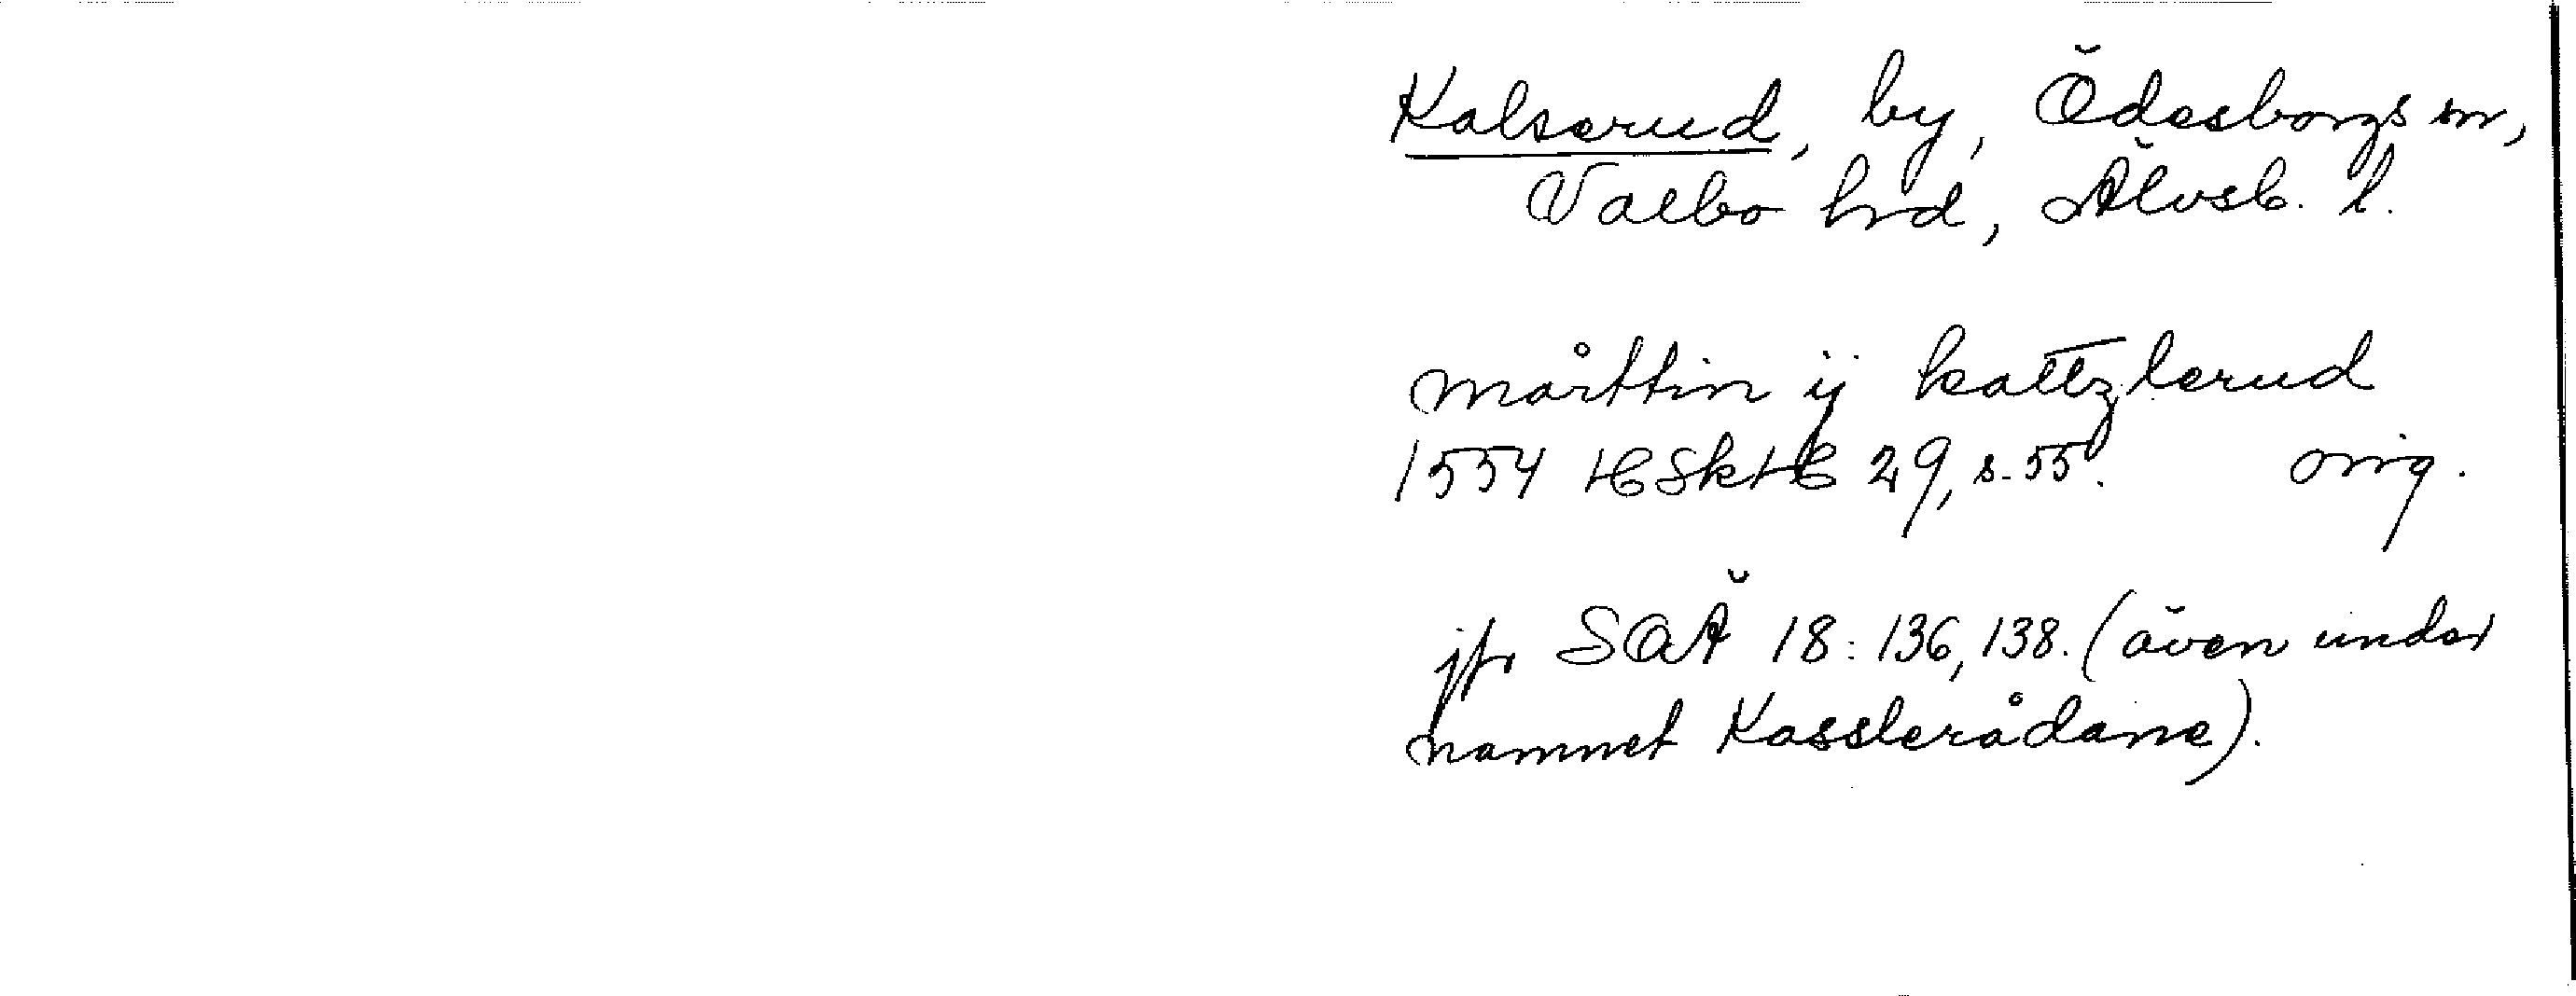 Kalserud, by, Ödesborgs sn,
Valbo hd, Älvsb. l.
mårttin ij kattzlerud
1554 HSkH 29, s. 55. orig.
jfr SOÄ 18: 136, 138. (även under
namnet Kasslerådane).